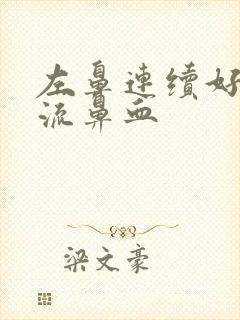 左鼻連續好
流鼻血
梁文豪